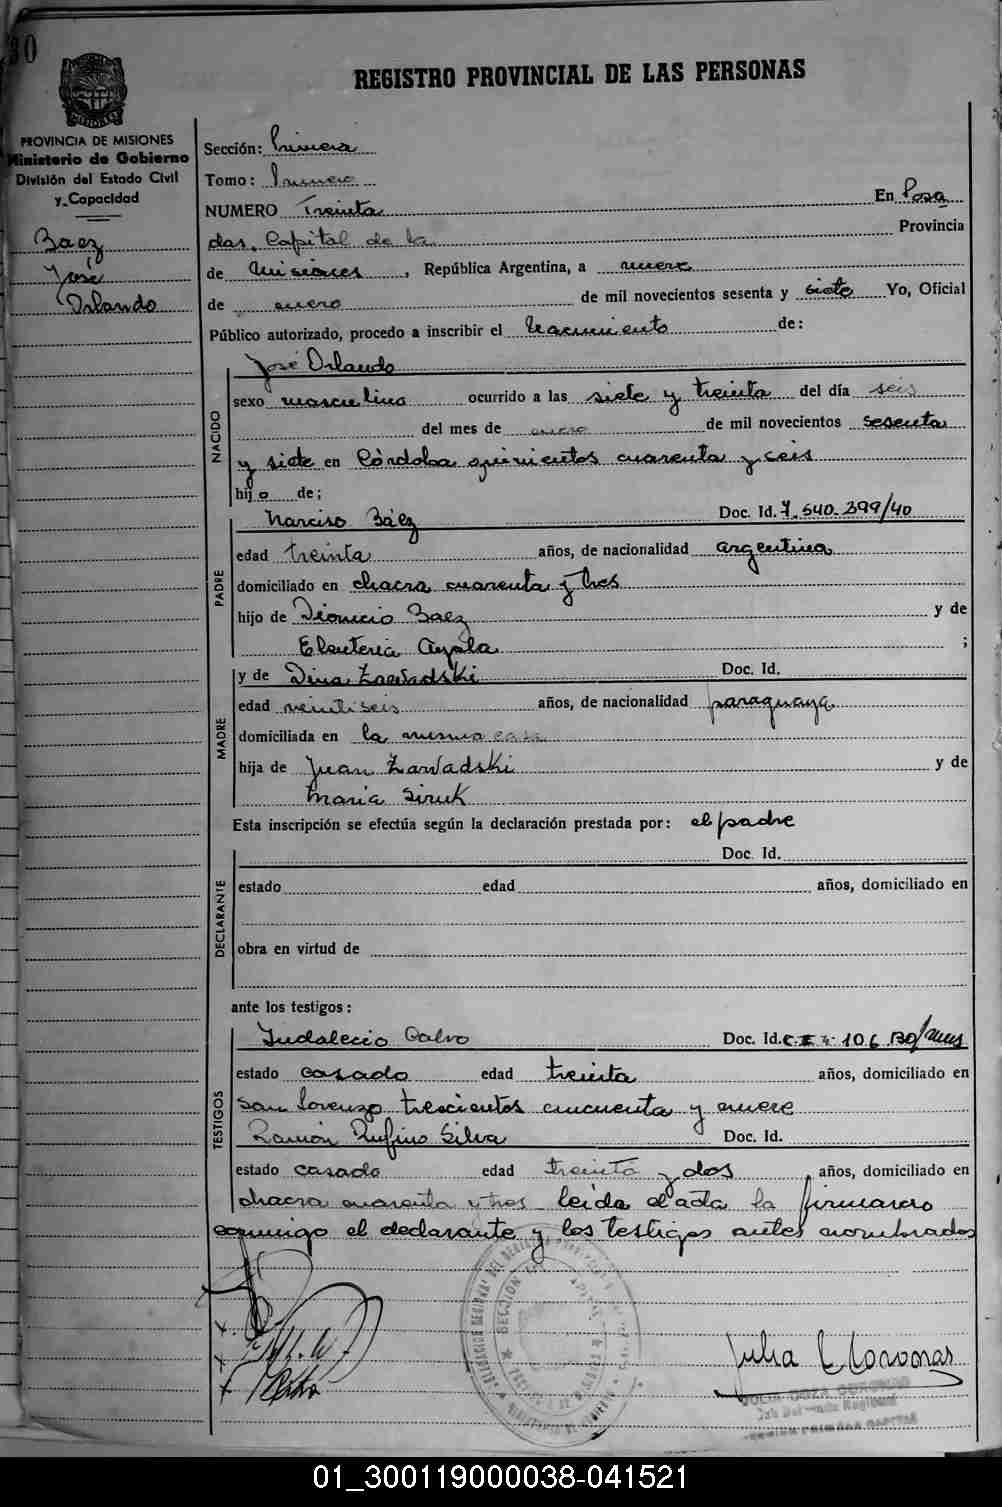 30
REGISTRO PROVINCIAL DE LAS PERSONAS
PROVINCIA DE MISIONES
Ministerio de Gobierno
División del Estado Civil
y Capacidad
Baez
José
Orlando
Sección: Primera
Tomo: Primero
NUMERO Treinta En Posa
das. Capital de la Provincia
de Misiones, República Argentina, a nueve
de enero de mil novecientos sesenta y siete Yo, Oficial
Público autorizado, procedo a inscribir el Nacimiento de:
José Orlando
NACIDO
sexo masculino ocurrido a las siete y treinta del día seis
del mes de enero de mil novecientos sesenta
y siete en Córdoba quinientos cuarenta y ceis
hijo de;
Narciso Báez Doc. Id. 7.540.399/40
PADRE
edad treinta años, de nacionalidad argentina
domiciliado en chacra cuarenta y tres
hijo de Dionicio Baez y de
Eleuteria Ayala ;
y de Dina Zawadski Doc. Id.
MADRE
edad veintiseis años, de nacionalidad paraguaya
domiciliada en la misma casa
hija de Juan Zawadski y de
Maria Siruk
Esta inscripción se efectúa según la declaración prestada por: el padre
Doc. Id.
DECLARANTE
estado edad años, domiciliado en
obra en virtud de
ante los testigos:
Indalecio Calvo Doc. Id. 106 130/
TESTIGOS
estado casado edad treinta años, domiciliado en
San Lorenzo trescientos cincuenta y nueve
Ramón Rufino Silva Doc. Id.
estado casado edad treinta y dos años, domiciliado en
chacra cuarenta y tres leida el acta la firmaron
conmigo el declarante y los testigos antes nombrados
SECCION CAPITAL
Julia
Jefe Delegado Regional
SECCION PRIMERA CAPITAL
01_300119000038-041521